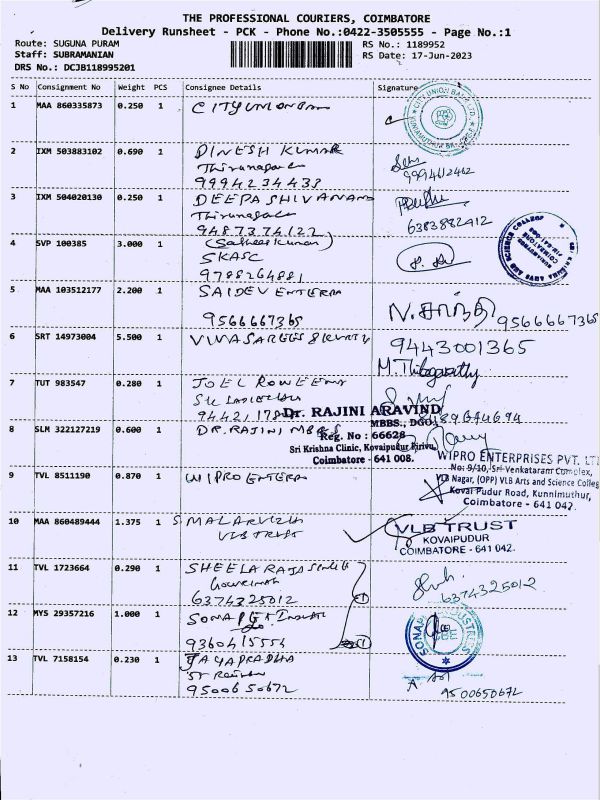 THE PROFESSIONAL COURIERS, COIMBATORE
Delivery Runsheet - PCK - Phone No.:0422-3505555 - Page No.:1
Route: SUGUNA PURAM
RS No.: 1189952
Staff: SUBRAMANIAN
RS Date: 17-Jun-2023
DRS No.: DCJB118995201
S No Consignment No Weight PCS Consignee Details Signature
1 MAA 860335873 0.250 1
CITY UNION BANK LTD.
2 IXM 503883102 0.690 1 DINESH KUMAR
9994234433
9994412462
3 IXM 504020130 0.250 1 DEEPA SHIVANAND
9487374122
6383882912
4 SVP 100385 3.000 1 (Sathees Kumar)
SKASC
9788264881
5 MAA 103512177 2.200 1 SAIDEV
9566667365
N. சாந்தி 9566667365
6 SRT 14973004 5.500 1
9443001365
7 TUT 983547 0.280 1 JOEL
8 SLM 322127219 0.600 1 DR. RAJINI MBBS
Dr. RAJINI ARAVIND
MBBS., DGO.
Reg. No : 66628
Sri Krishna Clinic, Kovaipudur Pirivu,
Coimbatore - 641 008.
9 TVL 8511190 0.870 1 WIPRO
WIPRO ENTERPRISES PVT. LT
No: 9/10, Sri Venkataram Complex,
VLB Nagar, (OPP) VLB Arts and Science Colleg
Kovai Pudur Road, Kunnimuthur,
Coimbatore - 641 042.
10 MAA 860489444 1.375 1 S. MALARVIZHI
VLB TRUST
VLB TRUST
KOVAIPUDUR
COIMBATORE - 641 042.
11 TVL 1723664 0.290 1 SHEELA RAJA
6374325012
6374325012
12 MYS 29357216 1.000 1 SONA
9360415554
13 TVL 7158154 0.230 1 JAYAPRADHA
9500650672
9500650672